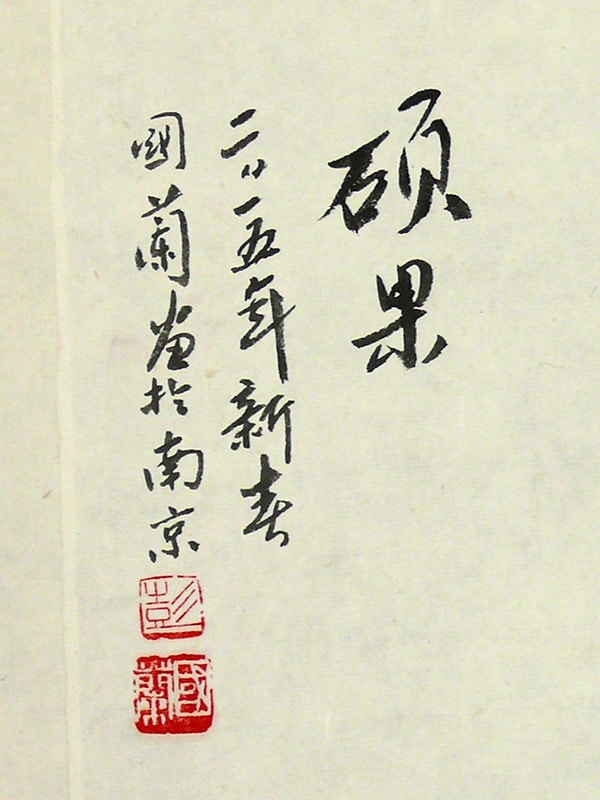 硕果
二〇一五年新春
國蘭画於南京
彭
國蘭